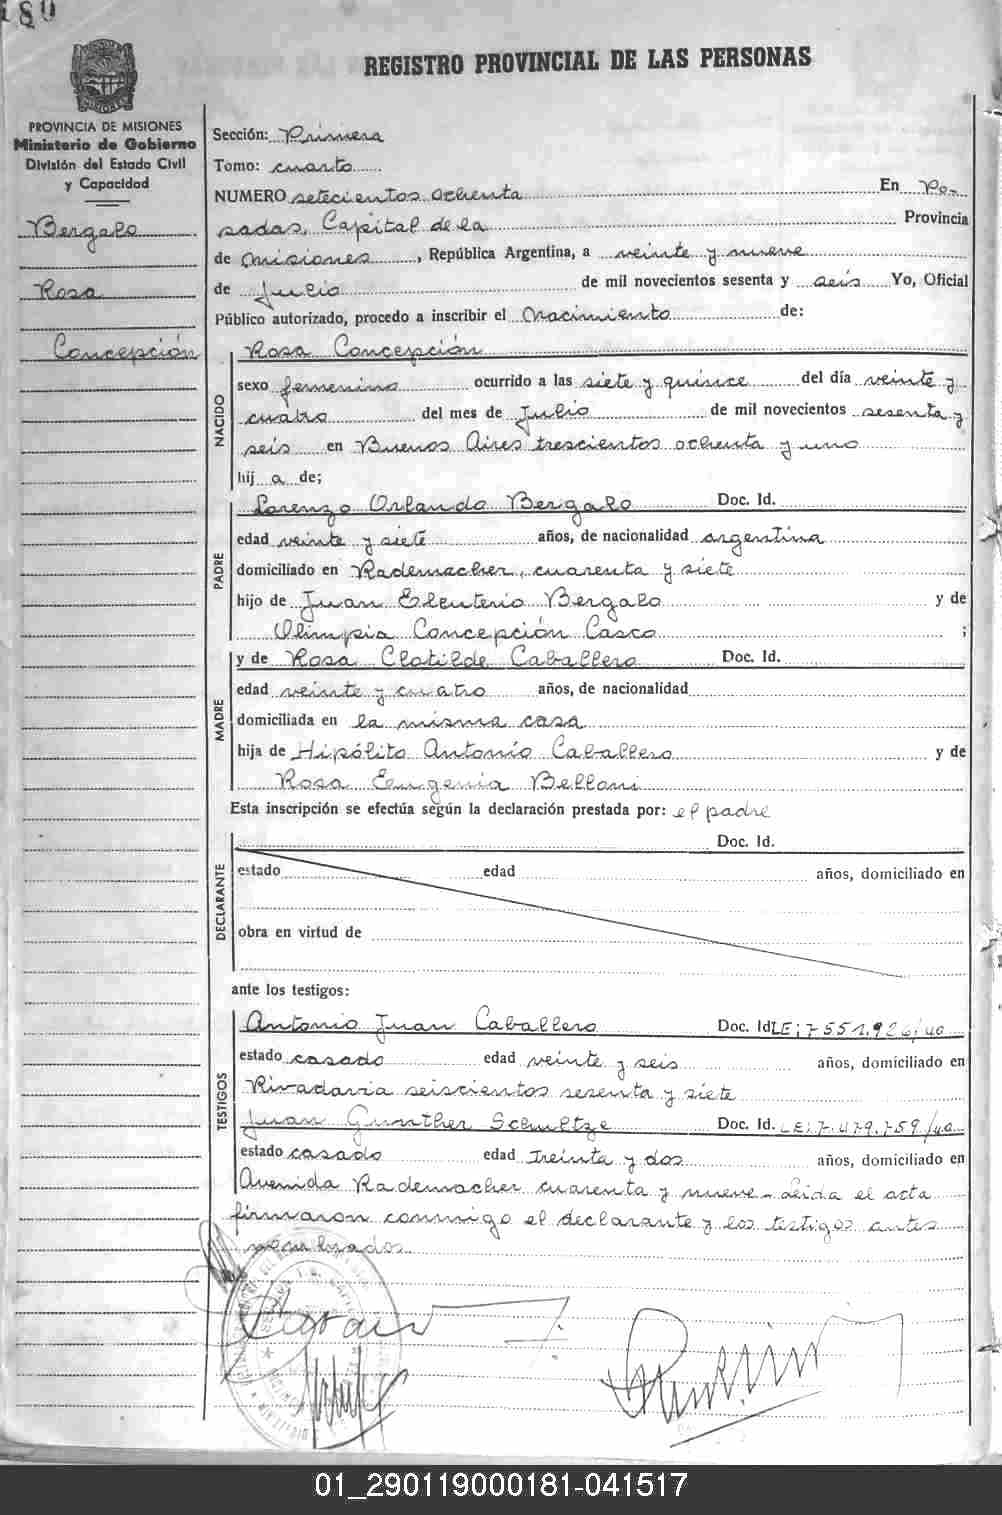 180
REGISTRO PROVINCIAL DE LAS PERSONAS
PROVINCIA DE MISIONES
Ministerio de Gobierno
División del Estado Civil
y Capacidad
Bergalo
Rosa
Concepción
Sección: Primera
Tomo: cuarto
NUMERO setecientos ochenta En Po-
sadas, Capital de la Provincia
de Misiones, República Argentina, a veinte y nueve
de Julio de mil novecientos sesenta y seis Yo, Oficial
Público autorizado, procedo a inscribir el Nacimiento de:
NACIDO
Rosa Concepción
sexo femenino ocurrido a las siete y quince del día veinte y
cuatro del mes de Julio de mil novecientos sesenta y
seis en Buenos Aires trescientos ochenta y uno
hij a de;
PADRE
Lorenzo Orlando Bergalo Doc. Id.
edad veinte y siete años, de nacionalidad argentina
domiciliado en Rademacher, cuarenta y siete
hijo de Juan Eleuterio Bergalo y de
Olimpia Concepción Casco ;
MADRE
y de Rosa Clotilde Caballero Doc. Id.
edad veinte y cuatro años, de nacionalidad
domiciliada en la misma casa
hija de Hipólito Antonio Caballero y de
Rosa Eugenia Belloni
Esta inscripción se efectúa según la declaración prestada por: el padre
DECLARANTE
Doc. Id.
estado edad años, domiciliado en
obra en virtud de
ante los testigos:
TESTIGOS
Antonio Juan Caballero Doc. Id. LE; 7551.926/40
estado casado edad veinte y seis años, domiciliado en
Rivadavia seiscientos sesenta y siete
Juan Gunther Schultze Doc. Id. LE; 7.479.759/40
estado casado edad treinta y dos años, domiciliado en
Avenida Rademacher cuarenta y nueve - Leida el acta
firmaron conmigo el declarante y los testigos antes
01_290119000181-041517